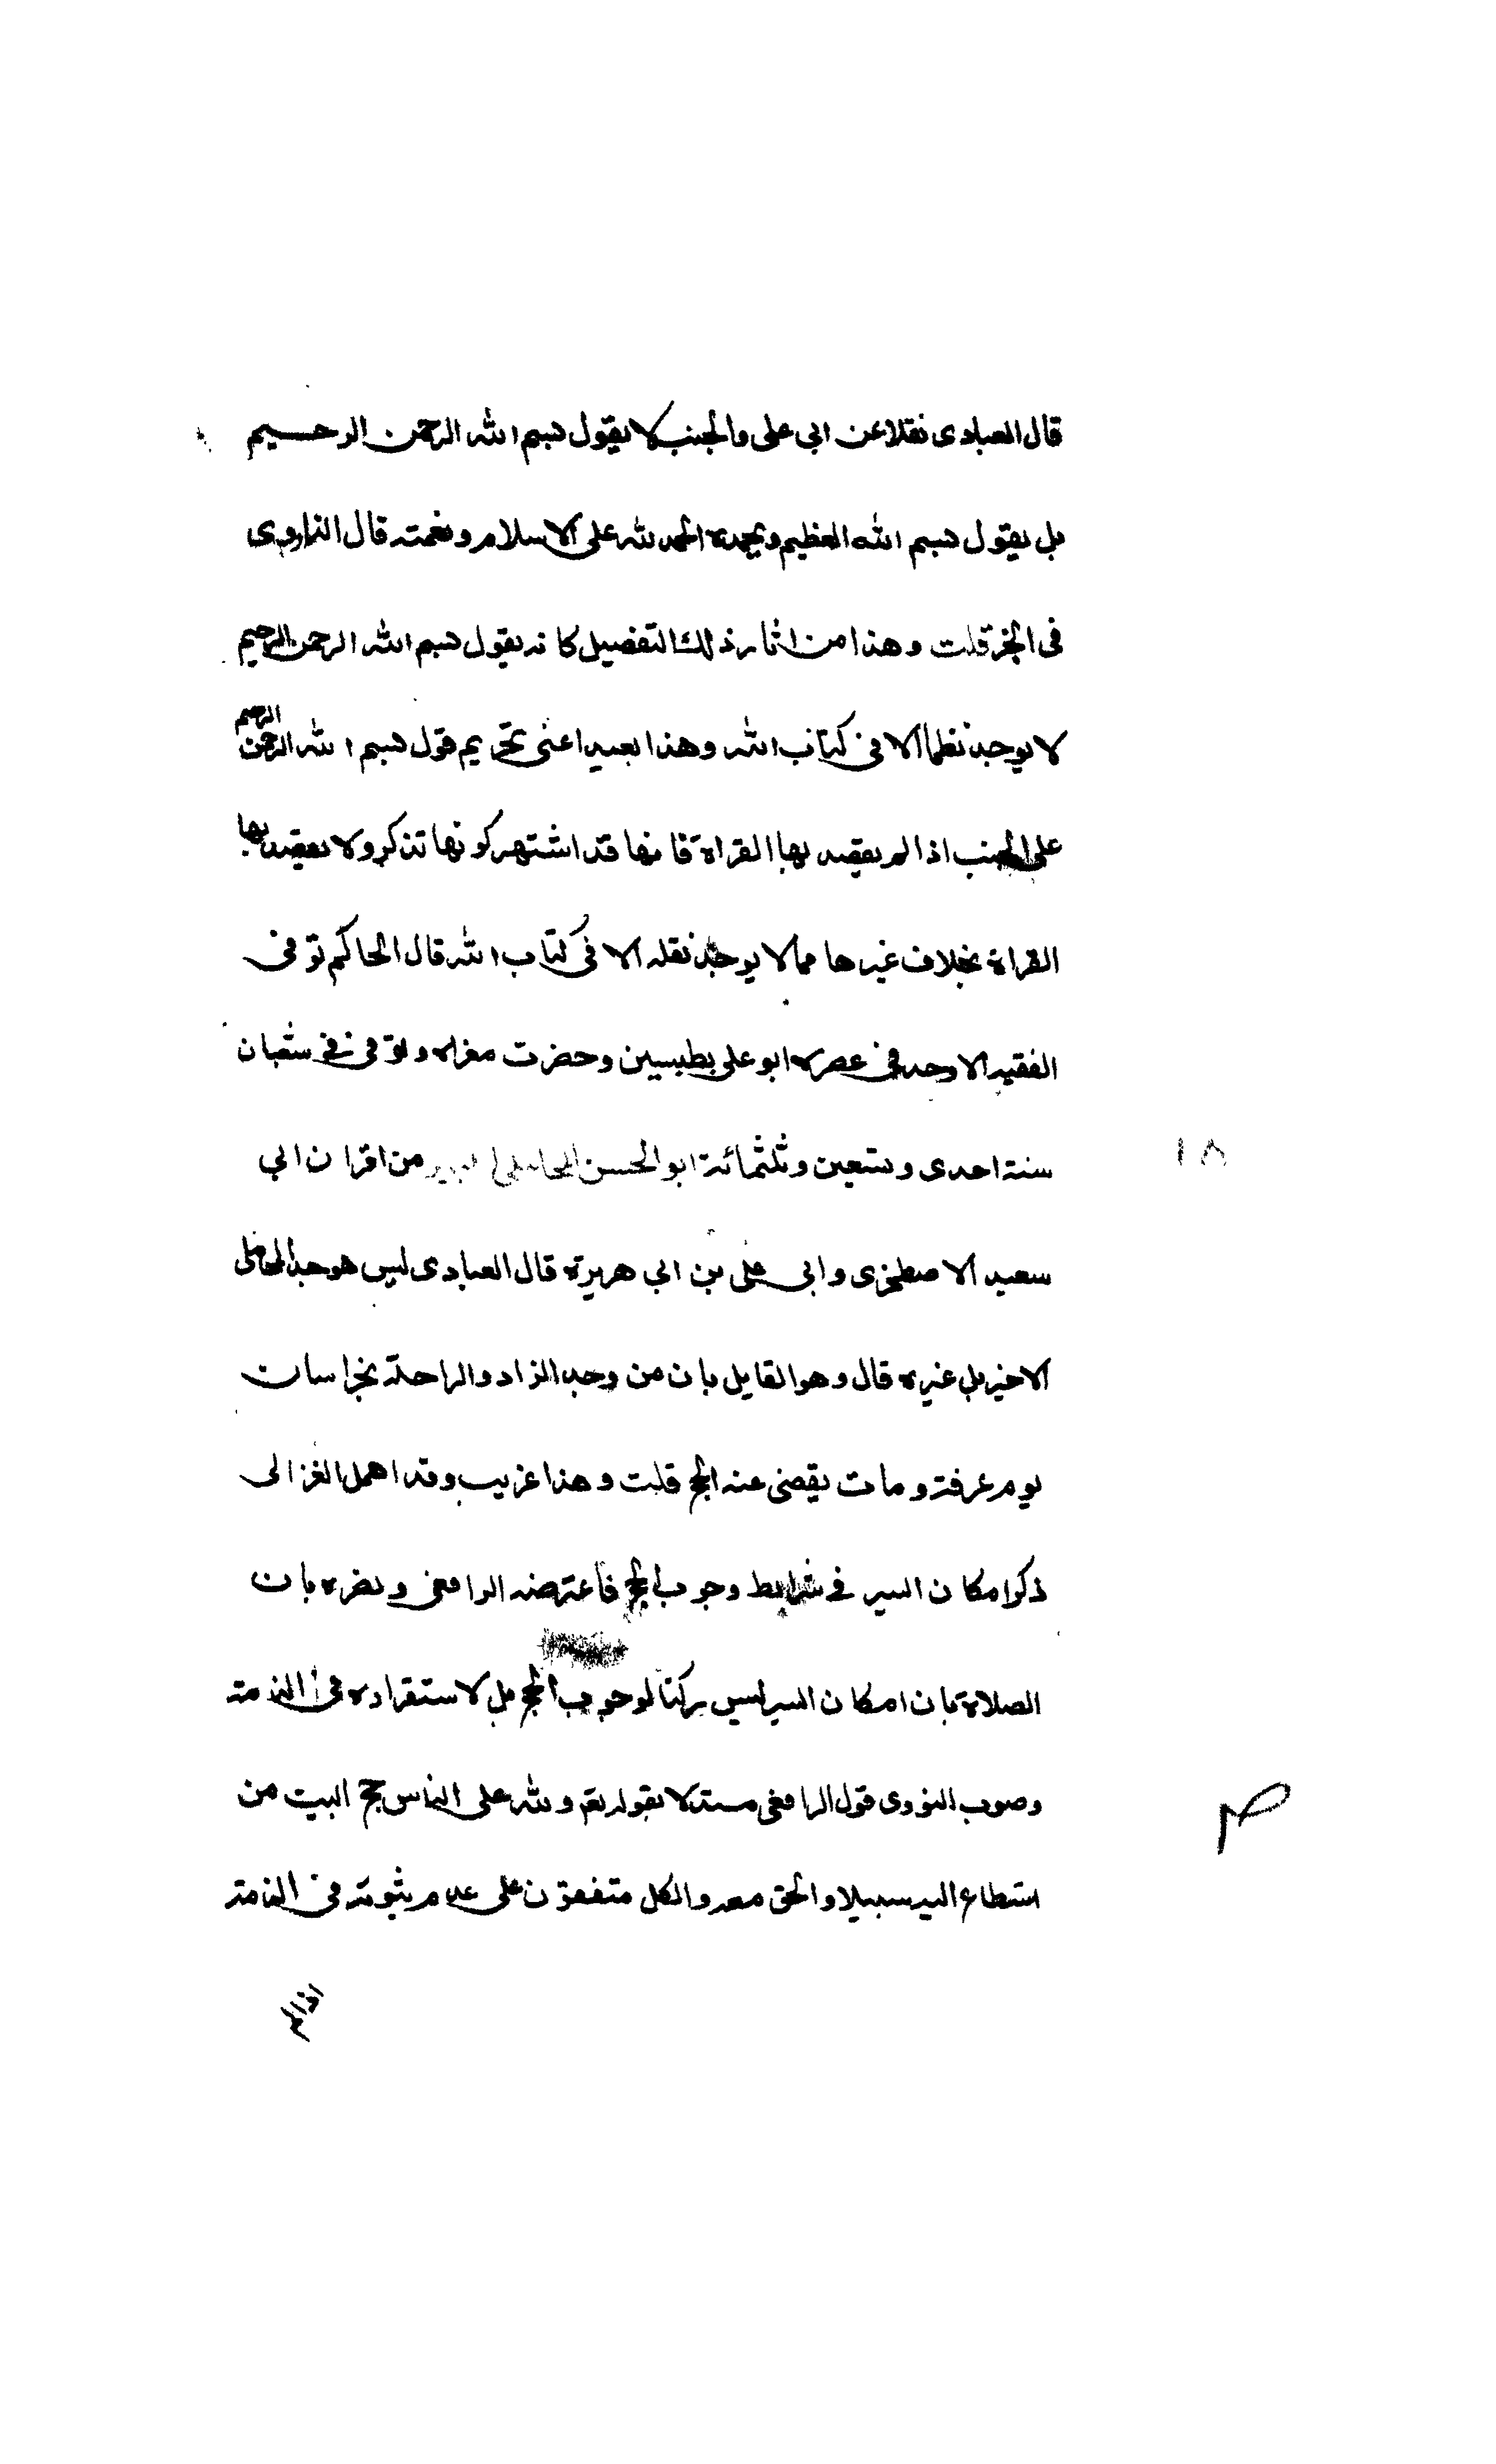 قال العبادى نقلا عن ابى على والجنب لا يقول بسم الله الرحمن الرحيم
بل يقول بسم الله العظيم وبحمده الحمد لله على الاسلام ونعمته قال
فى قلت وهذا من اثار ذلك التفصيل كانه يقول بسم الله الرحمن الرحيم
لا يوجد نظما الا فى كتاب الله وهذا بعيد اعنى تحريم قول بسم الله الرحمن الرحيم
على الجنب اذا لم يقصد بها القراة فانها قد اشتهر كونها تذكر ولا يقصد بها
القراة بخلاف غيرها مما لا يوجد نقله الا فى كتاب الله قال الحاكم توفى
الفقيه الاوحد فى عصره ابو على بطبسين وحضرت وتوفى فى شعبان
سنة احدى وستعين وثلثمائة ابو الحسن المحاملى الكبير من اقران ابي
سعيد الاصطخرى وابى على بن ابي هريرة قال العبادى ليس هو جد المحاملى
الاخير بل غيره قال وهو القايل بان من وجد الزاد والراحلة بخراسان
يوم عرفة ومات يقضى عنه الحج قلت وهذا غريب وقد اهمل الغزالى
ذكر امكان السير فى شرايط وجوب الحج فاعترضه الرافعى ونصره بان
الصلاة بان امكان السير ليس بركنا لوجوب الحج بل لاستقراره فى الذمة
وصوب النووى قول الرافعى مستدلا بقوله تع ولله على الناس حج البيت من
استطاع اليه سبيلا والحق معه والكل متفقون على عدم ثبوته فى الذمة
اذا لم
١٨